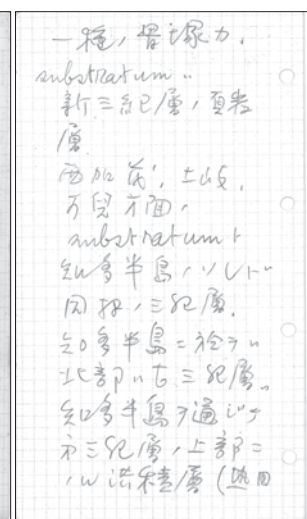 一種ノ骨塚カ.
substratum ハ
新三紀層ノ頁岩
層
西加茂、土岐、
可児方面ノ
substratum ト
知多半島ノソレトハ
同ジ、三紀層.
知多半島ニ於テハ
北部ハ古三紀層.
知多半島ヲ通ジテ
三紀層ノ上部ニ
ハ洪積層 (